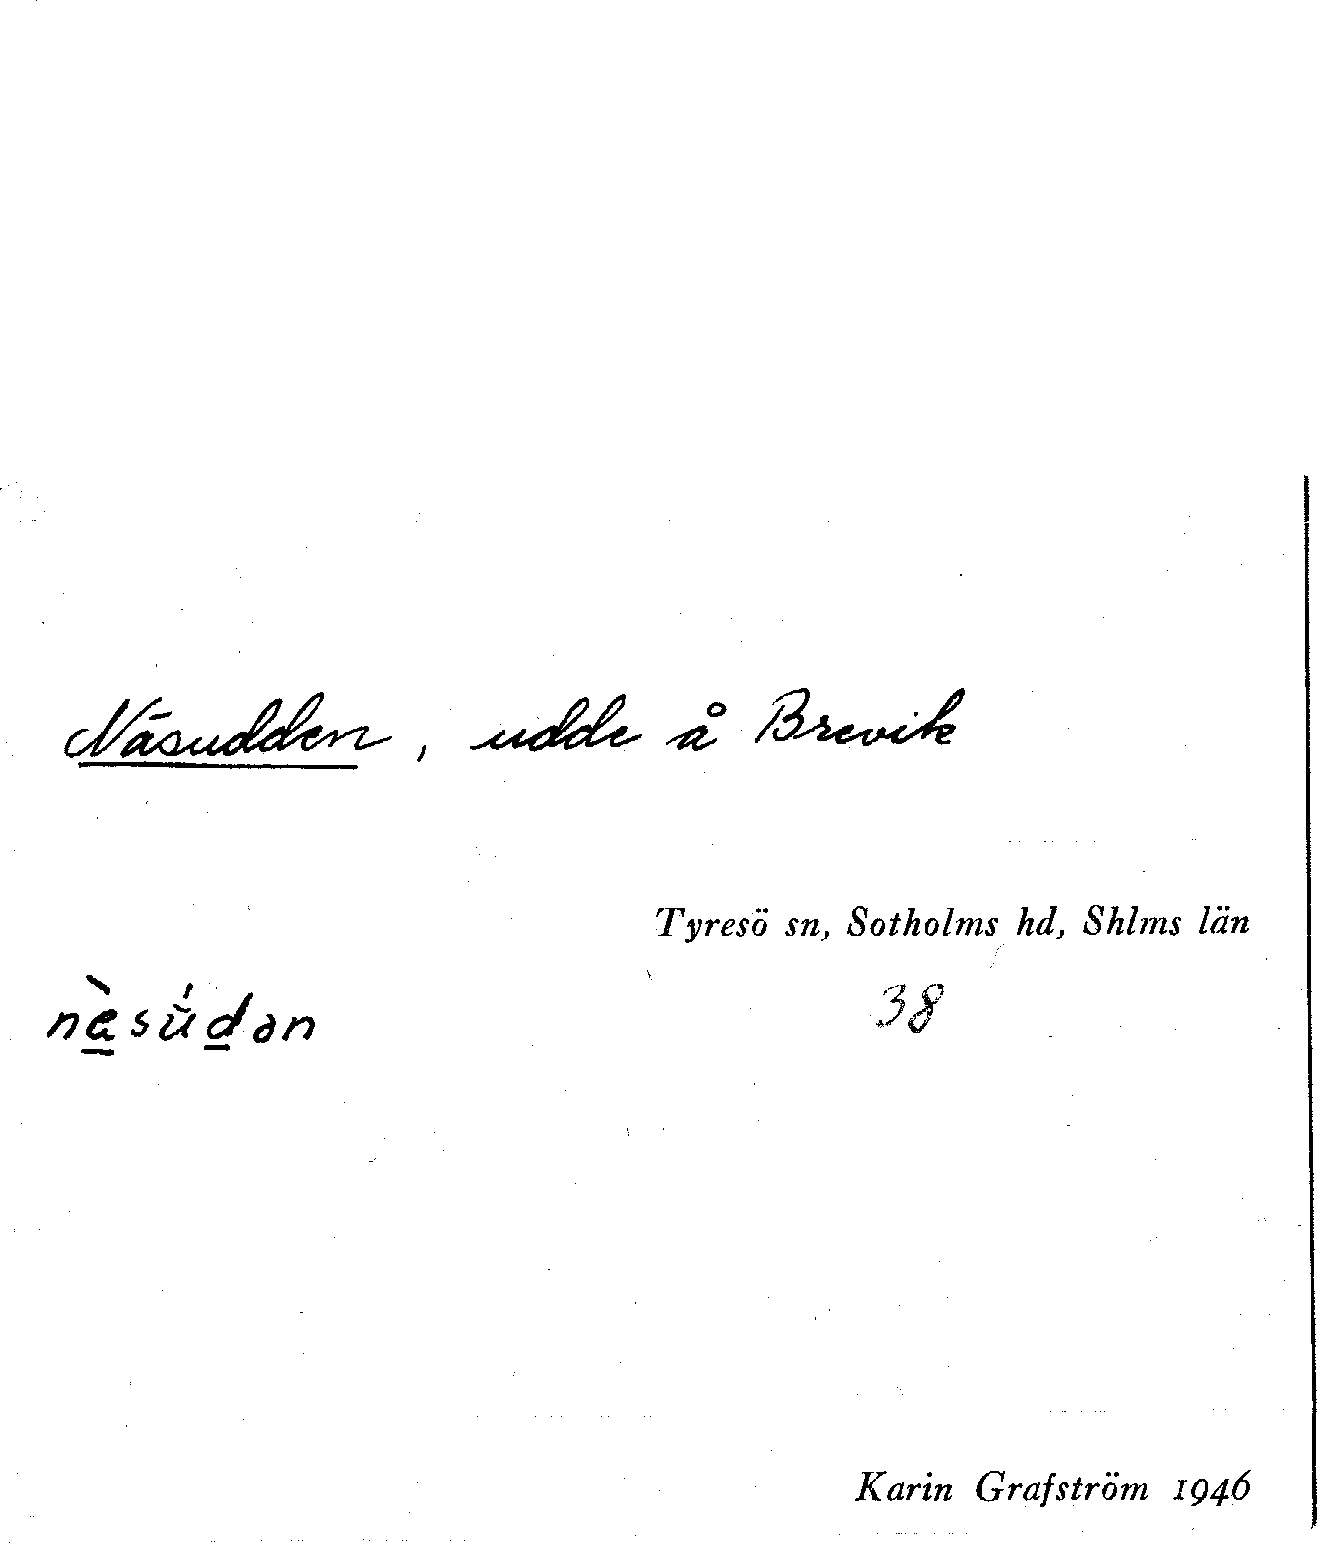 Näsudden, udde å Brevik
Tyresö sn, Sotholms hd, Shlms län
nèsú̆dən
38
Karin Grafström 1946